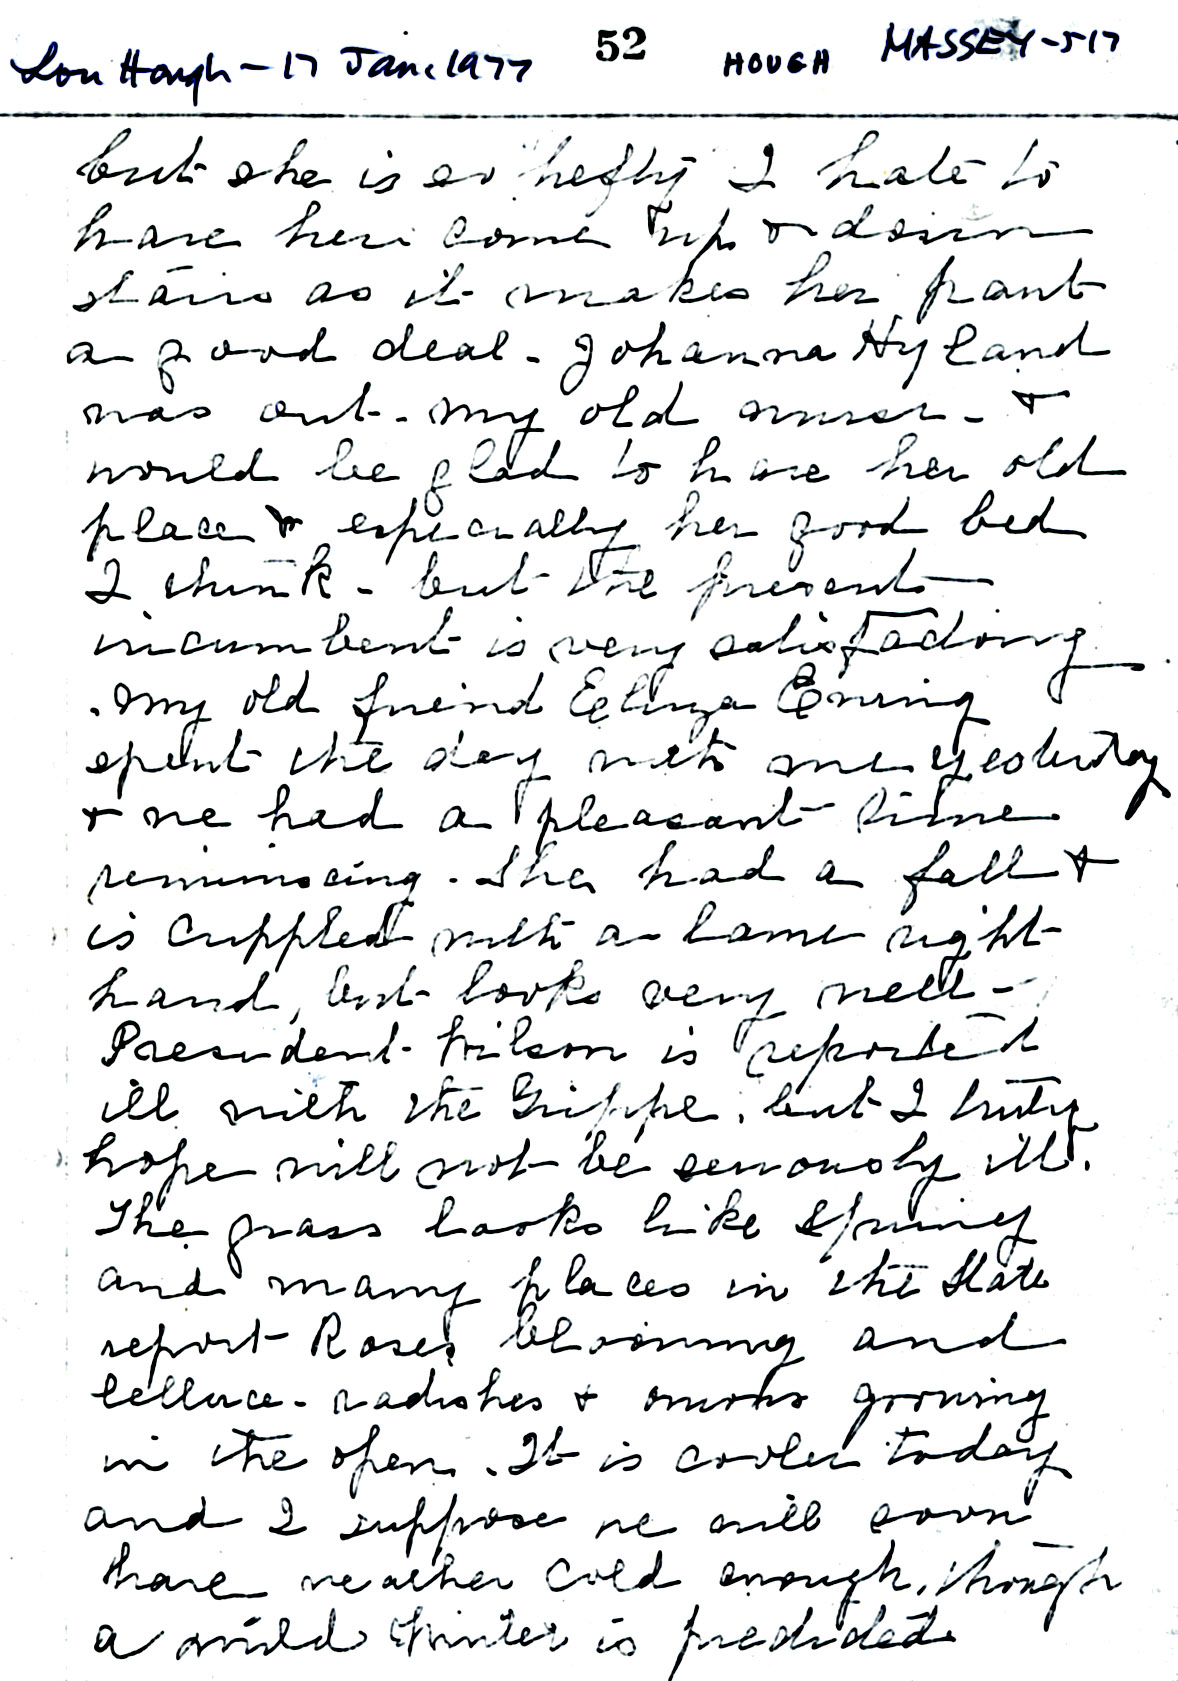 52
Lou Hough - 17 Jan. 1977 HOUGH MASSEY-517
but she is so hefty I hate to
have her come up & down
stairs as it makes her pant
a good deal - Johanna Hyland
was out - my old nurse - &
would be glad to have her old
place & especially her good bed
I think - but the present
incumbent is very satisfactory.
My old friend Eliza Ewing
spent the day with me yesterday
& we had a pleasant time
reminiscing. She had a fall &
is crippled with a lame right
hand, but looks very well -
President Wilson is reported
ill with the Grippe, but I truly
hope will not be seriously ill.
The grass looks like Spring
and many places in the State
report Roses blooming and
lettuce - radishes & onions growing
in the open. It is cooler today
and I suppose we will soon
have weather cold enough, though
a mild Winter is predicted